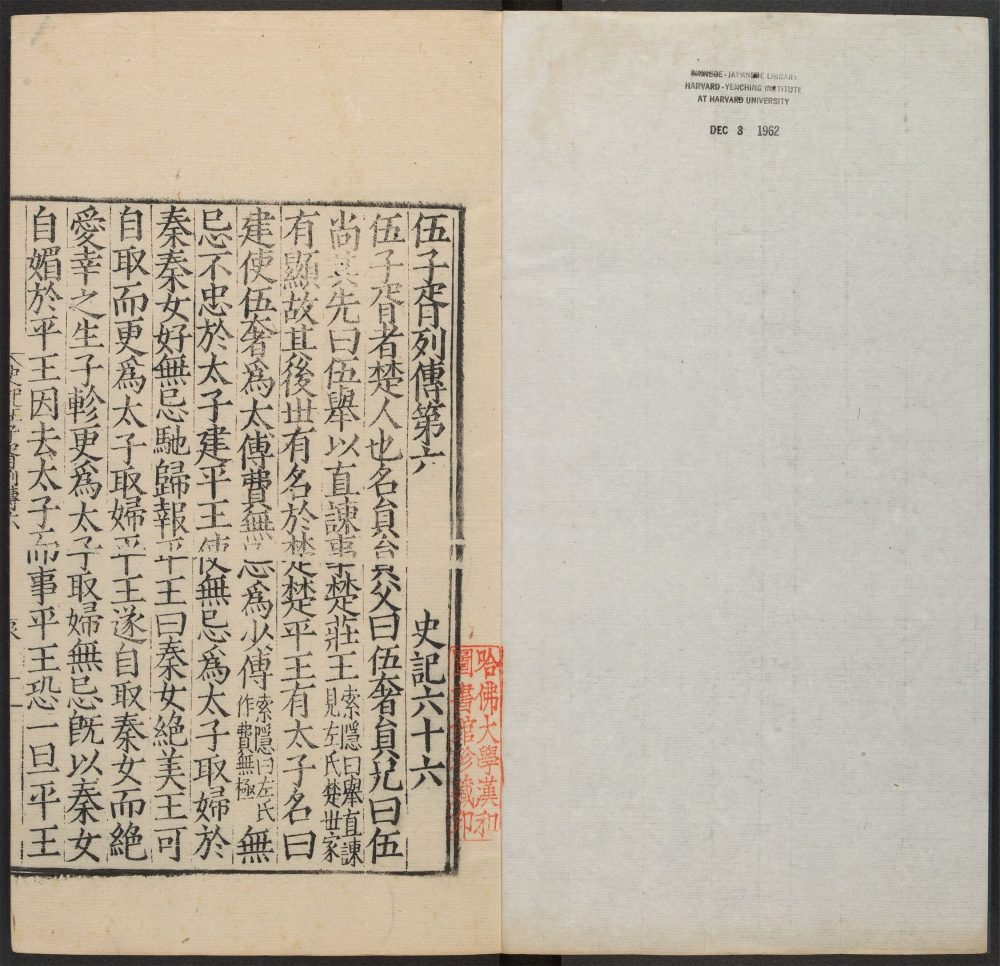 CHINESE-JAPANESE LIBRARY
HARVARD-YENCHING INSTITUTE
AT HARVARD UNIVERSITY
DEC 3 1962
哈佛大學漢和
圖書館珍藏印
伍子胥列傳第六 史記六十六
伍子胥者楚人也名員員父曰伍奢員兄曰伍
尚其先曰伍舉以直諫事楚莊王索隱曰舉直諫見左氏楚世家
有顯故其後世有名於楚楚平王有太子名曰
建使伍奢爲太傅費無忌爲少傅索隱曰左氏作費無極無
忌不忠於太子建平王使無忌爲太子取婦於
秦秦女好無忌馳歸報平王曰秦女絶美王可
自取而更爲太子取婦平王遂自取秦女而絶
愛幸之生子軫更爲太子取婦無忌旣以秦女
自媚於平王因去太子而事平王恐一旦平王